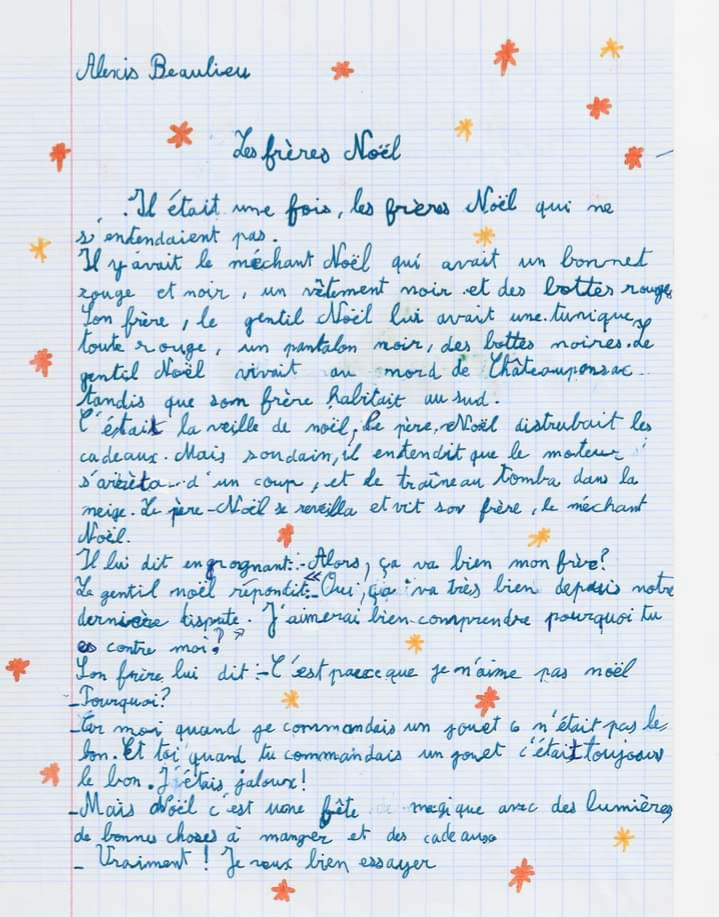 Alexis Beaulieu
Les frères Noël
Il était une fois, les frères Noël qui ne
s'entendaient pas.
Il y avait le méchant Noël qui avait un bonnet
rouge et noir, un vêtement noir et des bottes rouges
Son frère, le gentil Noël lui avait une tunique
toute rouge, un pantalon noir, des bottes noires. Le
gentil Noël vivait au mord de Châteauponsac
tandis que son frère habitait au sud.
C'était la veille de noël, le père-Noël distrubait les
cadeaux. Mais soudain, il entendit que le moteur
s'arrêta d'un coup, et le traîneau tomba dans la
neige. Le père-Noël se réveilla et vit son frère, le méchant
Noël.
Il lui dit en grognant: -Alors, ça va bien mon frère?
Le gentil noël répondit: "Oui, ça va très bien depuis notre
dernière dispute. J'aimerai bien comprendre pourquoi tu
es contre moi?"
Son frère lui dit: -C'est parce que je n'aime pas noël
-Pourquoi?
-Car moi quand je commandais un jouet c n'était pas le
bon. Et toi quand tu commandais un jouet c'était toujours
le bon. J'étais jaloux!
-Mais Noël c'est une fête magique avec des lumières
de bonnes choses à manger et des cadeaux
- Vraiment! Je veux bien essayer